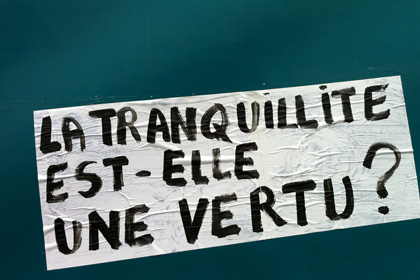 LA TRANQUILLITE
EST-ELLE
UNE VERTU?